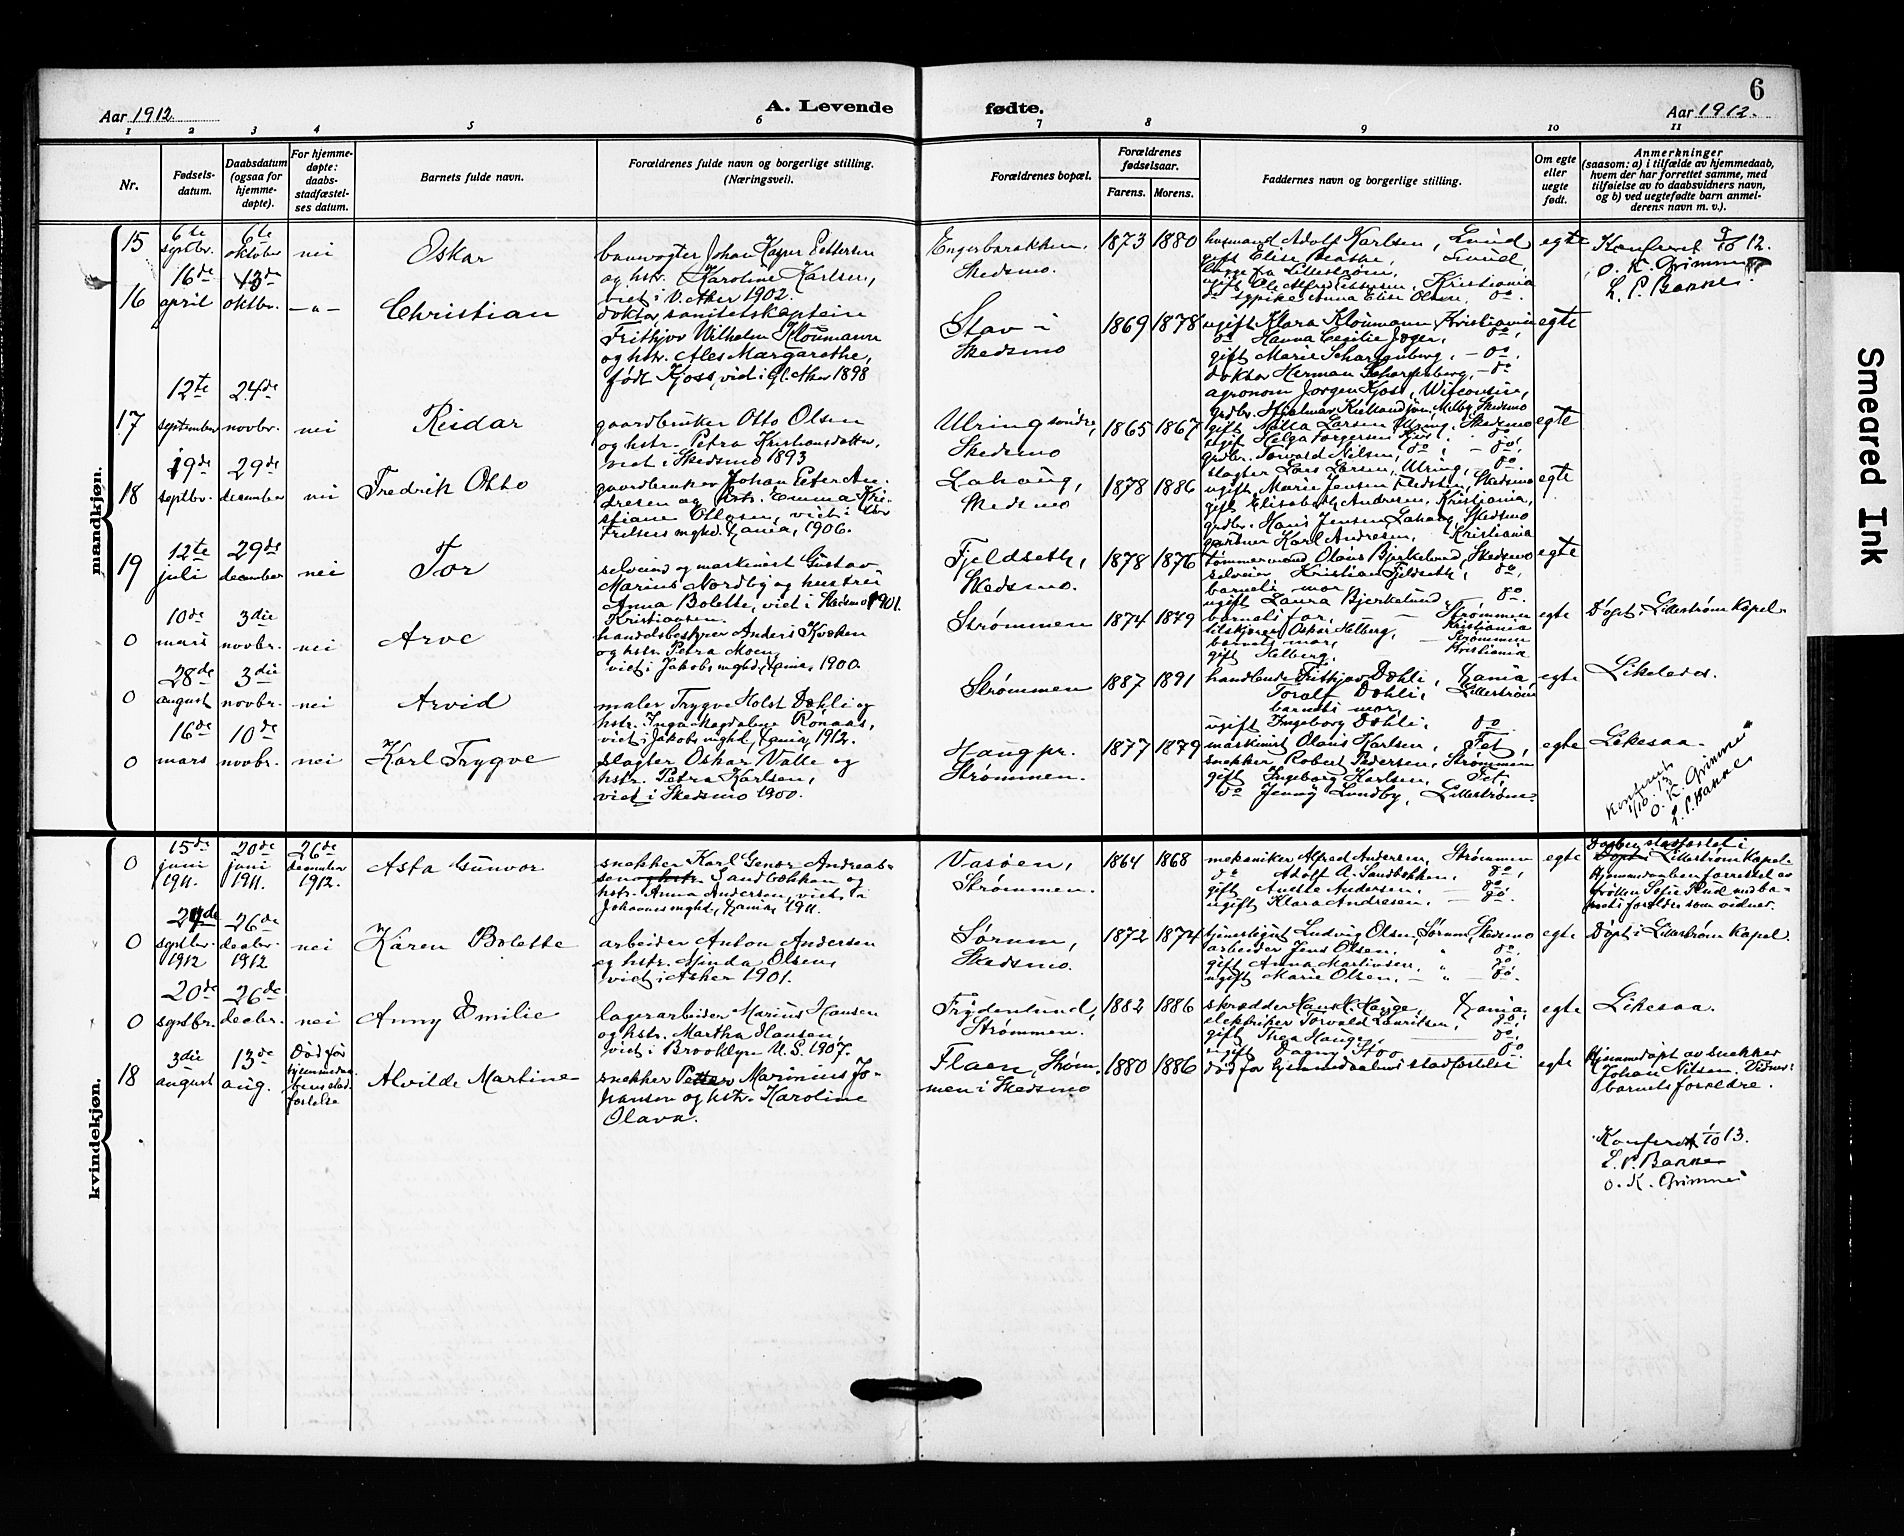 6
Aar 1912. A. Levende fødte. Aar 1912.
1 2 3 4 5 6 7 8 9 10 11
Nr.
Fødsels-
datum.
Daabsdatum
(ogsaa for
hjemme-
døpte).
For hjemme-
døpte:
daabs-
stadfæstel-
ses datum.
Barnets fulde navn.
Forældrenes fulde navn og borgerlige stilling.
(Næringsvei).
Forældrenes bopæl.
Forældrenes
fødselsaar.
Farens. Morens.
Faddernes navn og borgerlige stilling.
Om egte
eller
uegte
født.
Anmerkninger
(saasom: a) i tilfælde av hjemmedaab,
hvem der har forrettet samme, med
tilføielse av to daabsvidners navn,
og b) ved uegtefødte barn anmel-
derens navn m. v.).
mandkjøn.
15
6te
septbr.
6te
oktober
nei
Oskar
banevogter Johan Kasper Pettersen
og hstr. Karoline Karlsen,
viet i V. Aker 1902.
Engerbarakken.
Skedsmo.
1873 1880
husmand Adolf Karlsen, Lund
gift Elise Beathe, Lund,
egte
Konferert 9/10 12.
O. K. Grimnes
L. P. Bakke
16
16de
april
13de
oktbr.
—„—
Christian
doktor, sanitetskaptein
Frithjov Wilhelm Kloumann
og hstr. Ales Margarethe,
født Kjoss, vid i Gl. Aker 1898
Stav i
Skedsmo
1869 1878
ugift Klara Kloumann, Kristiania
do Hanna Cecilie Jæger, do.
gift Marie Scharffenberg, — do.
doktor Herman Scharffenberg, — do
agronom Jørgen Kjoss, Wisconsin,
egte
17
12te
september
24de
novbr.
nei
Reidar
gaardbruker Otto Olsen
og hstr. Petra Kristiansdatter,
viet i Skedsmo 1893
Ulring søndre,
Skedsmo
1865 1867
gift Milla Larsen Ulring, Skedsmo
grdbr. Torvald Nilsen, do,
slagter Lars Larsen, Ulring, do.
egte
18
19de
septbr.
29de
desember
nei
Fredrik Otto
gaardbruker Johan Peter An-
dresen og hstr. Emma Kri-
stiane Ottosen, viet i
Frelsers mghd. Kania, 1906.
Lahaug,
Skedsmo
1878 1886
ugift Marie Jensen Fledsten, Skedsmo
gift Elisabeth Andresen, Kristiania,
grdbr. Hans Jensen Lahaug, Skedsmo
gartner Karl Andresen, Kristiania
egte
19
12te
juli
29de
december
nei
Tor
selveier og maskinist Gustav
Marius Nordby og hustru
Anna Bolette, viet i Skedsmo 1901.
Kristiansen.
Fjeldseth,
Skedsmo.
1878 1876
tømmermand Olaus Bjerkelund, Skedsmo
selveier Kristian Fjeldseth, do,
barnets mor
ugift Laura Bjerkelund, do.
egte
0
10de
mars
3die
novbr.
nei
Arve
handelsbestyrer Anders Kvæken
og hstr. Petra Moen,
viet i Jakobs mghd, Kania, 1900.
Strømmen
1874 1879
barnets far, — Strømmen
Oskar Helberg, Kristiania
barnets mor, Strømmen
gift Helberg, Kristiania
egte
Døpt i Lillestrøm Kapel.
0
28de
august
3die
novbr.
nei
Arvid
maler Trygve Holst Dæhli og
hstr. Inga Magdalene Rønaas,
viet i Jakobs mghd, Kania, 1912.
Strømmen
1887 1891
handlende Fritkjov Dæhli, Kania
Toralf Dæhli, Lillestrøm
barnets mor,
ugift Ingeborg Dæhli, do
egte
Likeledes.
0
16de
mars
10de
novbr.
nei
Karl Trygve
slagter Oskar Valle og
hstr. Petra Karlsen,
viet i Skedsmo 1900.
Haug pr.
Strømmen.
1877 1879
maskinist Olaus Karlsen, Fet,
snekker Robert Pedersen, Strømmen
gift Ingeborg Karlsen, Fet,
do Jenny Lundby, Lillestrøm.
egte
Likesaa.
Konferert
1/10 13
O. K. Grimnes
L. P. Bakke
kvindekjøn.
0
15de
juni
1911.
20de
juni
1911.
26de
desember
1912.
Asta Gunvor
snekker Karl Genor Andreas-
sen og hstr. Sandbækken og
hstr. Anna Andersen, viet i
Johannes mghd, Kania, 1911.
Vasøen,
Strømmen.
1864 1868
mekaniker Alfred Andersen, Strømmen
do Adolf A. Sandbækken, do,
gift Anette Andersen, — do.
ugift Klara Andresen, — do.
egte
Daaben stadfæstet i
Døpt i Lillestrøm Kapel.
Hjemmedaaben forrettet av
frøken Sofie Rud med ba-
rnets forældre som vidner.
0
27de
septbr.
1912
26de
decbr.
1912
nei
Karen Bolette
arbeider Anton Andersen
og hstr. Minda Olsen,
viet i Asker 1901.
Sørum,
Skedsmo.
1872 1874
Ludvig Olsen, Sørum, Skedsmo
arbeider Jens Olsen, „ do.
gift Anna Martinsen, „ do
ugift Marie Olsen, — „ — do.
egte
Døpt i Lillestrøm Kapel.
0
20de
septbr.
26de
decbr.
nei
Anny Emilie
lagerarbeider Marius Hansen
og hstr. Martha Hansen,
viet i Brooklyn U. S. 1907.
Frydenlund,
Strømmen.
1882 1886
skrædder Hans K. Hauge, Kania,
elektriker Torvald Lauritsen, do,
gift Thea Hauge, — do,
ugift Dagny Stoo — do.
egte
Likesaa.
18
3die
august
13de
aug.
Død før
hjemmedaa-
bens stad-
fæstelse
Alvilde Martine
snekker Petter Marinius Jo-
hansen og hstr. Karoline
Olava.
Flaen, Strøm-
men i Skedsmo
1880 1886
død før hjemmedaabens stadfæstelse
egte
Hjemmedøpt av snekker
Johan Nilsen. Vidner:
barnets forældre.
Konferert 1/10 13.
L. P. Bakke
O. K. Grimnes
Smeared Ink